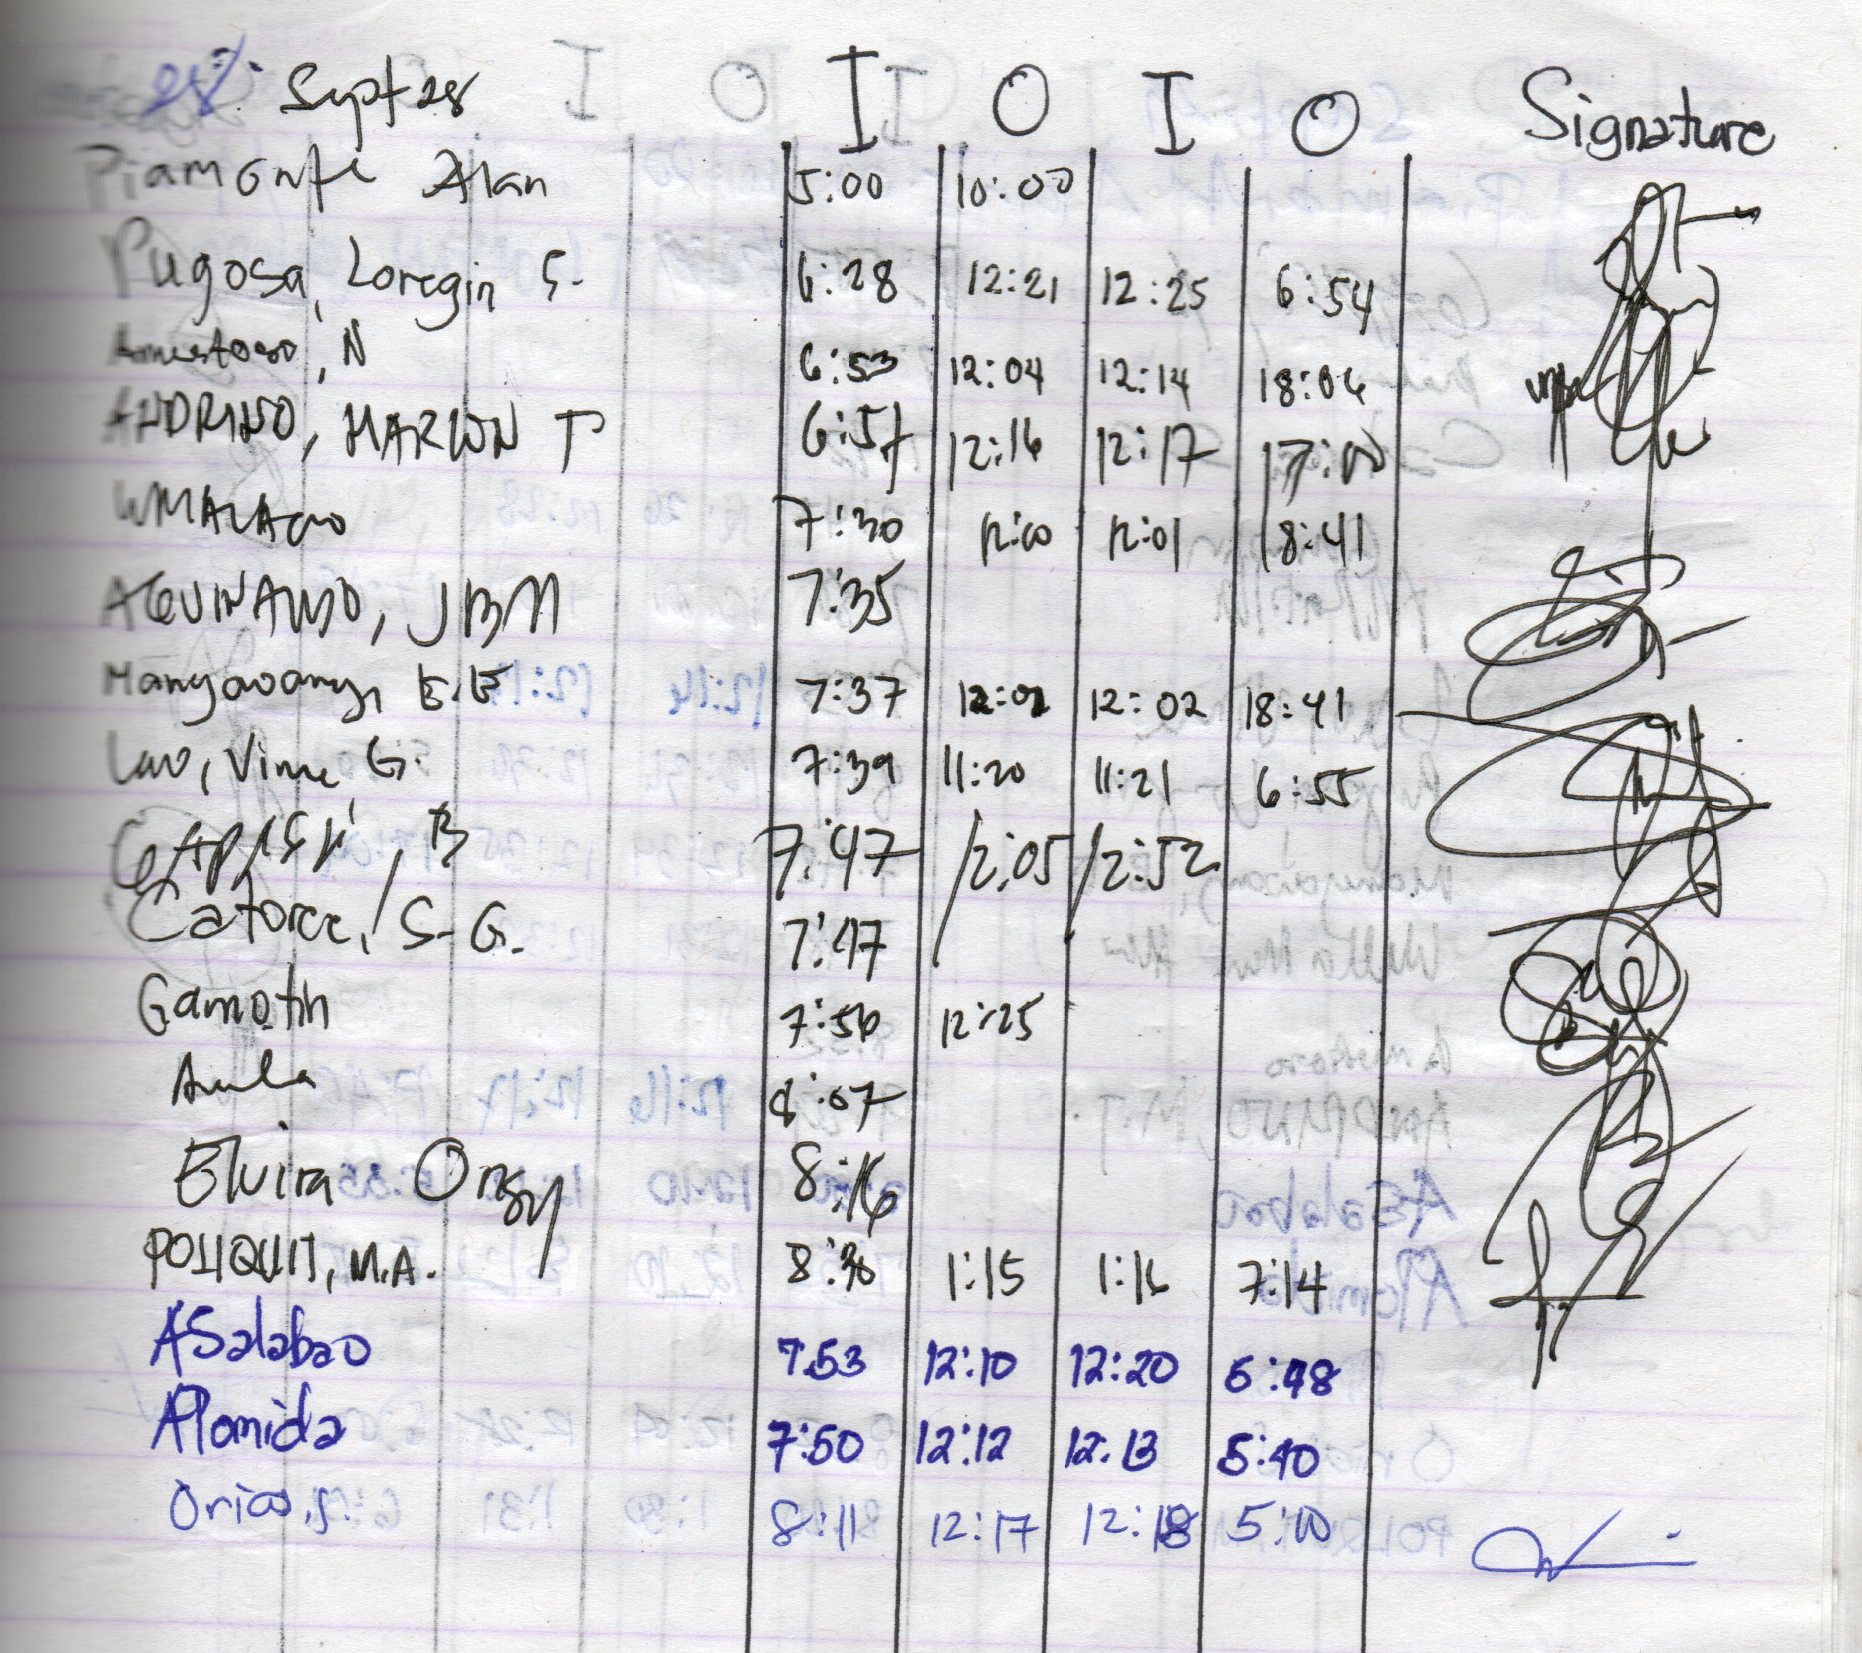 Sept 28 I O I O Signature
Piamonte Alan 5:00 10:00
Pugosa, Loregin S. 6:28 12:21 12:25 6:54
N 6:53 12:04 12:14 18:06
ANDRINO, MARWIN T 6:57 12:16 12:17 17:00
7:30 12:00 12:01 18:41
AGUINALDO, JBM 7:35
Mangaoang, E.E 7:37 12:02 12:02 18:41
G. 7:39 11:20 11:21 6:55
B 7:47 12:05 12:52
Catorce, S. G. 7:47
Gamotin 7:56 12:25
8:07
Elvira Ongy 8:16
POLIQUIT, M.A. 8:30 1:15 1:16 7:14
ASalabao 7:53 12:10 12:20 5:48
Alomida 7:50 12:12 12:13 5:40
8:11 12:17 12:18 5:00